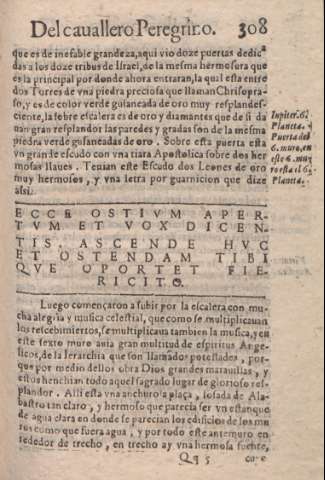 Del cavallero Peregrino. 308
que es de inefable grandeza, aqui vio doze puertas dedica
das a los doze tribus de Israel, de la mesma hermosura que
es la principal por donde ahora entraran, la qual esta entre
dos Torres de vna piedra preciosa que llaman Chrisopra-
so, y es de color verde guianeada de oro muy resplandes-
ciente, la sobre escalera es de oro y diamantes que de si da
uan gran resplandor las paredes y gradas son de la mesma
piedra verde guianeadas de oro. Sobre esta puerta esta
vn grande escudo con vna tiara Apostolica sobre dos her-
mosas llaues. Tenian este Escudo dos Leones de oro
muy hermosos, y vna letra por guarnicion que dize
assi.
Iupiter. 6.
Planeta. y
Puerta del
6. muro, en
este 6. mu
ro esta el 6.
Planeta.
ECCE OSTIVM APER-
TVM ET VOX DICEN-
TIS. ASCENDE HVC
ET OSTENDAM TIBI
QVE OPORTET FIE-
RI CITO.
Luego començaron a subir por la escalera con mu-
cha alegria y musica celestial, que como se multiplicauan
los rescebimientos, se multiplicaua tambien la musica, y en
este sexto muro auia gran multitud de espiritus Ange-
licos, de la Ierarchia que son llamados potestades, por-
que por medio dellos obra Dios grandes marauillas, y
estos henchian todo aquel sagrado lugar de glorioso res-
plandor. Alli esta vna anchurosa plaça, losada de Ala-
bastro tan claro, y hermoso que parecia ser vn estanque
de agua clara en donde se parecian los edificios de los mu
ros como que fuera agua, y por todo este antemuro en
rededor de trecho, en trecho ay vna hermosa fuente,
Qq 5 co